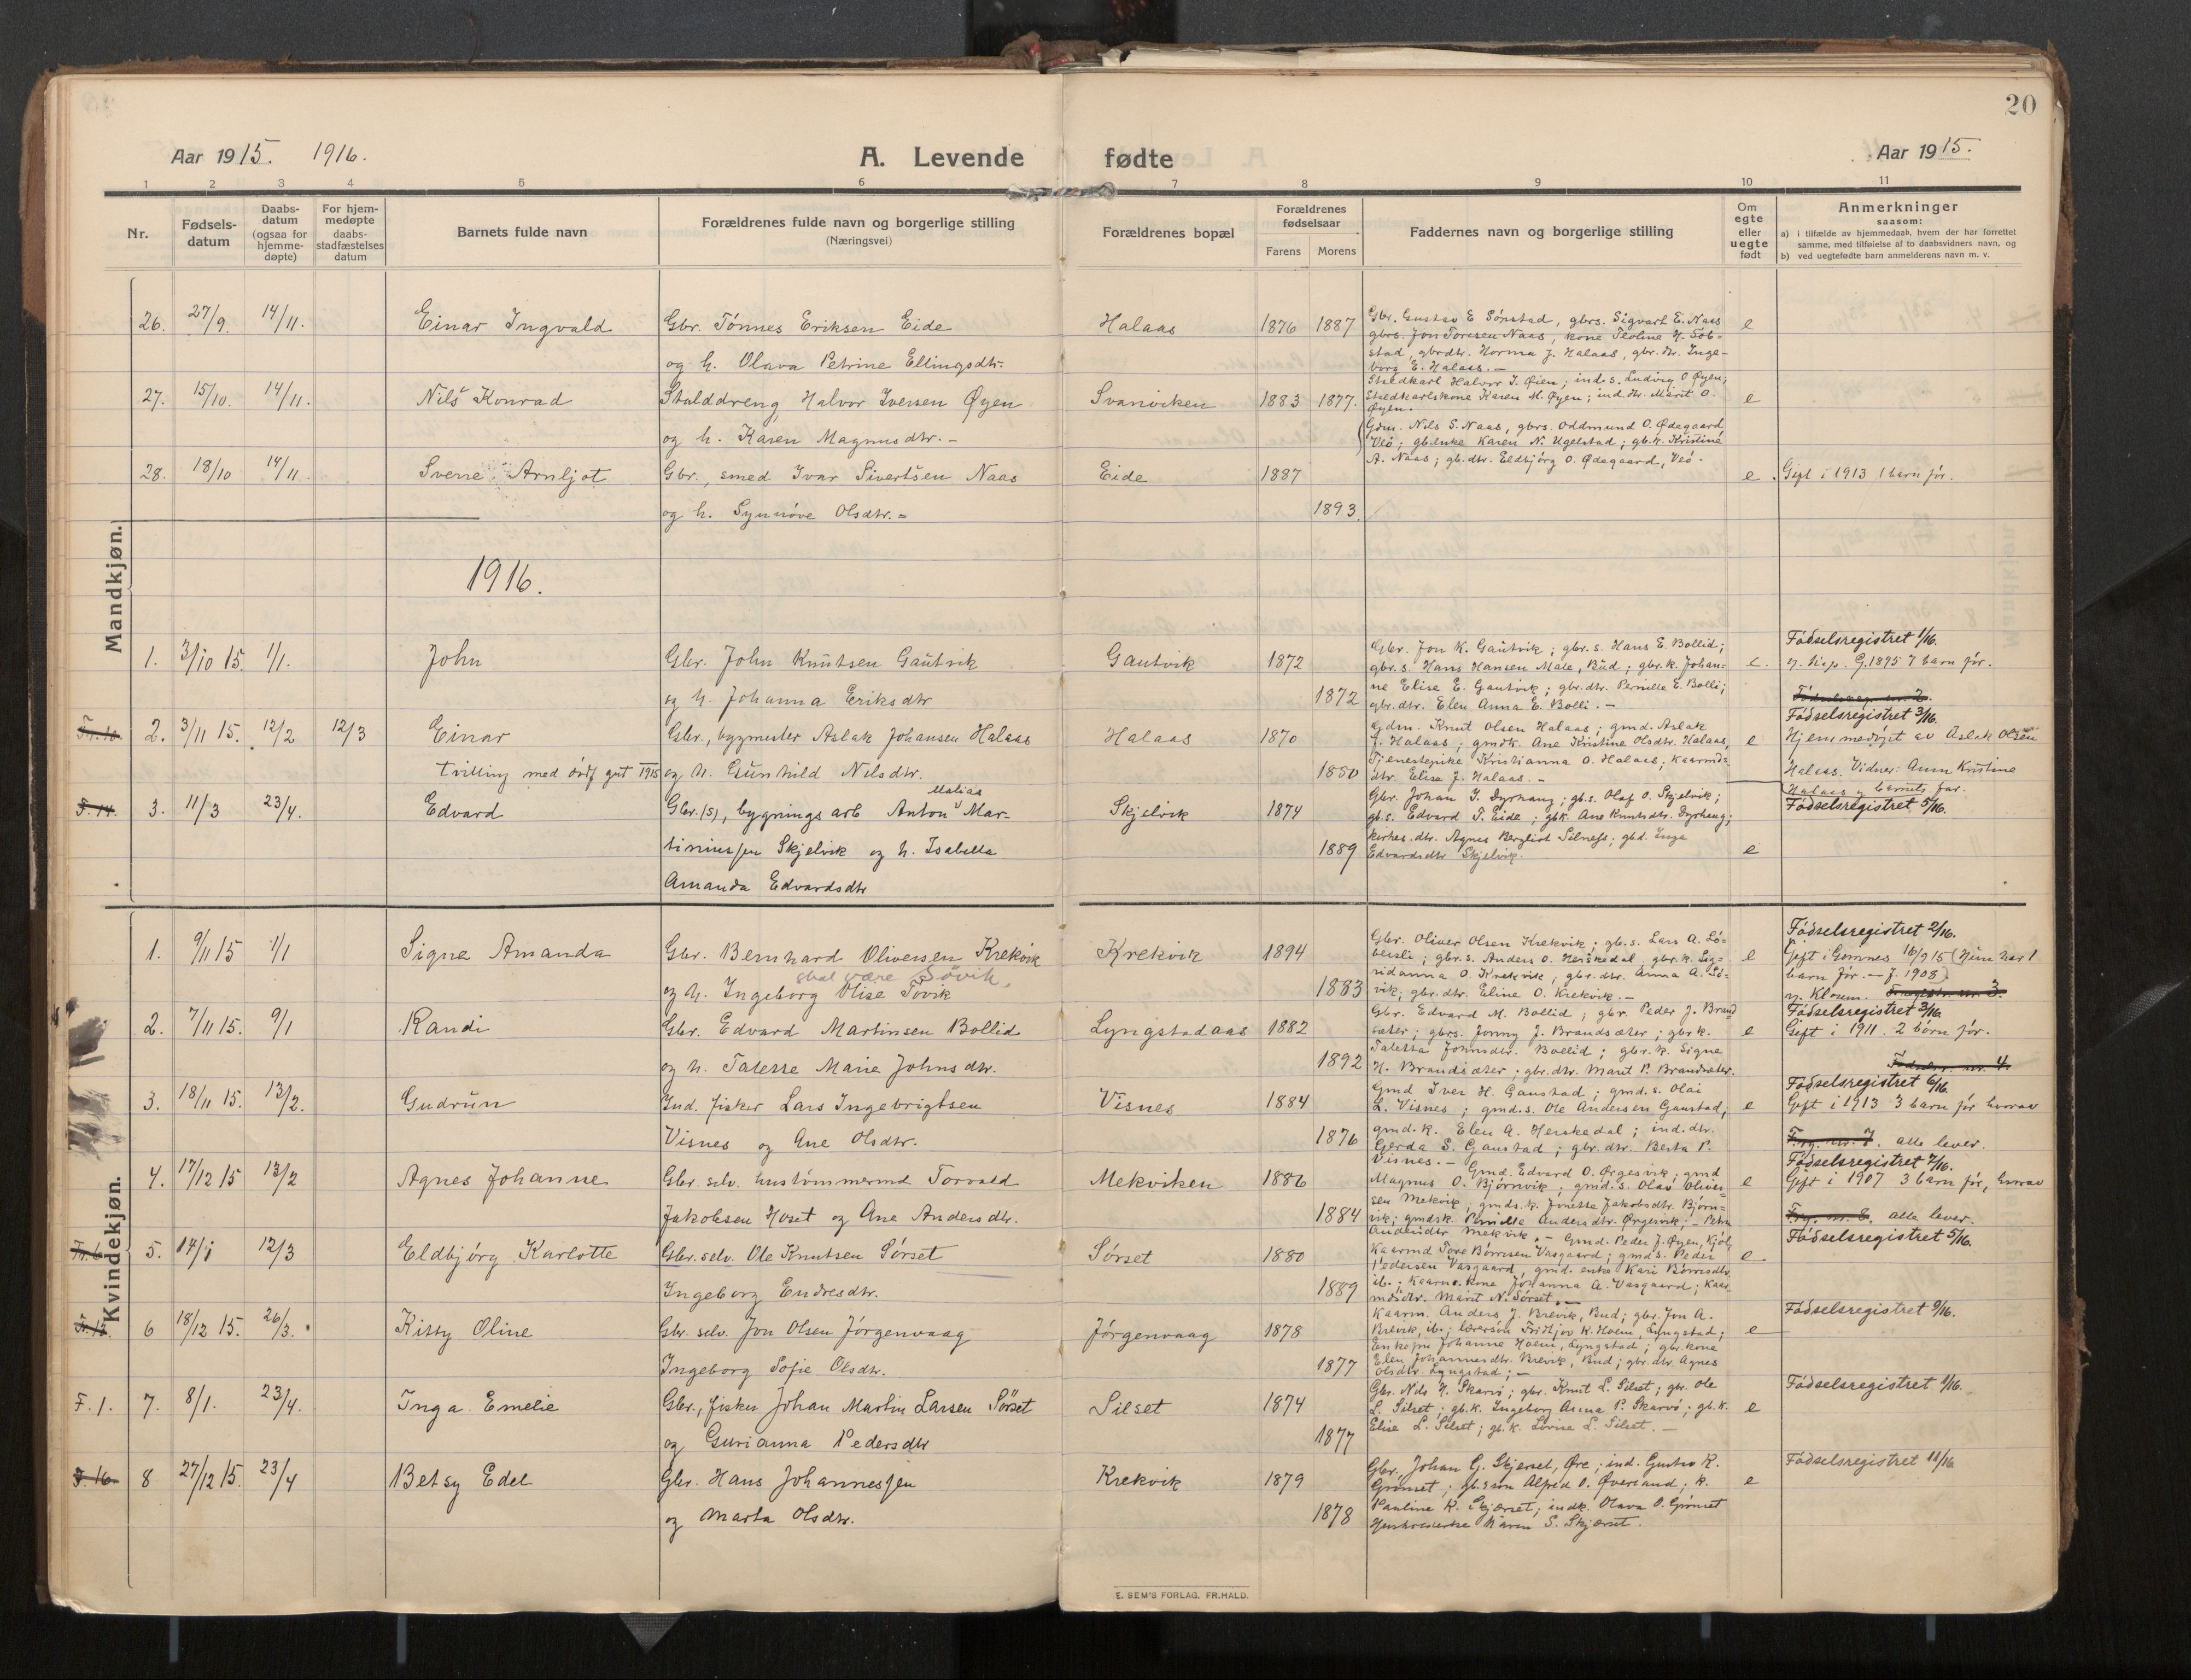 20
Aar 1915. 1916.
A. Levende fødte
Aar 1915.
1 2 3 4 5 6 7 8 9 10 11
Nr.
Fødsels-
datum
Daabs-
datum
(ogsaa for
hjemme-
døpte)
For hjem-
medøpte
daabs-
stadfæstelses
datum
Barnets fulde navn
Forældrenes fulde navn og borgerlige stilling
(Næringsvei)
Forældrenes bopæl
Forældrenes
fødselsaar
Farens Morens
Faddernes navn og borgerlige stilling
Om
egte
eller
uegte
født
Anmerkninger
saasom:
a) i tilfælde av hjemmedaab, hvem der har forrettet
samme, med tilføielse af to daabsvidners navn, og
b) ved uegtefødte barn anmelderens navn m. v.
Mandkjøn.
26. 27/9. 14/11. Einar Ingvald Gbr. Tönnes Eriksen Eide Halaas 1876 1887 e
og h. Olava Petrine Ellingsdtr.
Gbr. Gustav E Sönstad, gbrs. Sigvart E. Naas
gbrs. Jon Toresen Naas, kone
stad, gbrdtr. Horma J. Halaas, gbr. dtr. Inge-
borg E. Halaas. -
27. 15/10. 14/11. Nils Konrad Stalddreng Halvor Iversen Øyen Svanviken 1883 1877. e
og h. Karen Magnusdtr. -
Stedkarl Halvor I. Øien; ind. s. Ludvig O Øyen;
Stedkarlskone Karen M. Øyen; ind. dtr. Marit O.
Øyen.
28. 18/10 14/11. Sverre Arnljot Gbr., smed Ivar Sivertsen Naas Eide 1887 e. Gift i 1913 1 barn för.
og h. Synnöve Olsdtr. 1893.
Gdm. Nils S. Naas, gbrs. Oddmund O. Ødegaard,
Veö; gb.enke Karen N. Ugelstad; gb.k. Kristine
A. Naas; gb.dtr. Eldbjörg O. Ødegaard, Veö.
1916.
1. 3/10 15. 1/1. John Gbr. John Knutsen Gautvik Gautvik 1872 e.
og h. Johanna Eriksdtr 1872
Gbr. Jon K. Gautvik; gbr. s. Hans E. Bollid;
gbr. s. Hans Hansen Male, Bud; gbr. k. Johan-
ne Elise E. Gautvik; gbr. dtr. Pernille E. Bolli;
gbr. dtr. Elen Anna E. Bolli. -
Födselsregistret 1/16.
G. 1895 7 barn för.
2. 3/11 15. 12/2 12/3 Einar Gbr., bygmester Aslak Johansen Halaas Halaas 1870 e
Tvilling med dödf gut 1915 og h. Gunhild Nilsdtr. 1880
Gdm. Knut Olsen Halaas; gmd. Aslak
J. Halaas; gmdk. Ane Kristine Olsdtr. Halaas,
Tjenestepike Kristianna O. Halaas; Kaarmds-
dtr. Elise J. Halaas. -
Födselsregistret 3/16.
Hjemmedöpt av Aslak Olsen
Halaas. Vidner: Anne Kristine
Halaas og barnets far.
F. 14. 3. 11/3 23/4. Edvard Gbr.(s), bygnings arb Anton Matias Mar- Skjelvik 1874
tiniussen Skjelvik og h. Isabella 1889 e
Amanda Edvardsdtr
Gbr. Johan I. Dyrhaug; gb.s. Olaf O. Skjelvik;
gb.s. Edvard T. Eide; gbk. Ane Knutsdtr. Dyrhaug;
kirkes. dtr. Agnes Bergliot Silness; gbd. Inga
Edvardsdtr Skjelvik.
Födselsregistret 5/16.
Kvindekjøn.
1. 9/11 15 1/1 Signe Amanda Gbr. Bernhard Oliversen Krekvik Krekvik 1894 e
skal være Sövik.
og h. Ingeborg Olise Tövik 1883
Gbr. Oliver Olsen Krekvik; gb.s. Lars A. Lö-
gbr.s. Anders O. Herskedal, gbr. k. Sig-
ridanna O. Krekvik; gbr. dtr. Anna A. Sö-
vik; gbr. dtr. Eline O. Krekvik. -
Födselsregistret 2/16.
Gift i Gomnes 16/9 15 (Hun har 1
barn för. - f. 1908)
2. 7/11 15. 9/1 Randi Gbr. Edvard Martinsen Bollid Lyngstadaas 1882 e
og h. Talette Marie Johnsdtr. 1892
Gbr. Edvard M. Bollid; gbr. Peder J. Brand
sæter; gbrs. Jonny J. Brandsæter; gbr k.
Taletta Johnsdtr. Bollid; gbr. k. Signe
H. Brandsæter; gbr. dtr. Marit P. Brandsæter.
Födselsregistret 3/16.
Gift i 1911. 2 börn för.
3. 18/11 15. 13/2. Gudrun Ind. fisker Lars Ingebrigtsen Visnes 1884 e
Visnes og Ane Olsdtr. 1876
Gmd Iver H. Gaustad; gmd.s. Olai
L. Visnes; gmd.s. Ole Andersen Gaustad;
gmd.k. Elen A. Herskedal; ind. dtr.
Gerda S. Gaustad; gbr. dtr. Berta P.
Visnes. -
Födselsregistret 6/16.
Gift i 1913 3 barn för hvorav
alle lever.
4. 17/12 15 13/2 Agnes Johanne Gbr. selv. hustömmermd Torvald Mekviken 1886 e
Jakobsen Hoset og Ane Andersdtr. 1884
Gmd. Edvard O. Ørgesvik; gmd
Magnus O. Björnvik; gmd.s. Olav Oliver-
sen Mekvik; gmds. k. Jonette Jakobsdtr. Björn-
vik; gmdsk. Pernille Andersdtr. Ørgesvik; - Petra
Andersdtr Mekvik. -
Födselsregistret 7/16.
Gift i 1907 3 barn för, hvorav
alle lever.
5. 14/1 12/3 Eldbjörg Karlotte Gbr. selv. Ole Knutsen Sörset Sörset 1880 e
Ingeborg Endresdtr. 1889
Gmd. Peder J. Øyen, Kjöl;
Kaarmd Tore Börresen Vasgaard; gmd s. Peder
Pedersen Vasgaard, gmd. enke Kari Börresdtr
ib.; Kaarm. kone Johanna A. Vasgaard; Kaar-
mdsdtr. Marit N. Sörset. -
Födselsregistret 5/16.
6 18/12 15. 26/3. Kitty Oline Gbr. selv. Jon Olsen Jörgenvaag Jörgenvaag 1878 e
Ingeborg Sofie Olsdtr. 1877
Kaarm. Anders J. Brevik, Bud; gbr. Jon A.
Brevik, ib.; lærersön Fridtjov K. Hoem, Lyngstad;
Johanne Hoem, Lyngstad; gbr. kone
Elen Johannesdtr. Brevik, Bud; gbr. dtr. Agnes
Olsdtr. Lyngstad; -
Födselsregistret 9/16.
F. 1. 7. 8/1. 23/4. Inga Emelie Gbr., fisker Johan Martin Larsen Sörset Silset 1874 e
og Gurianna Pedersdtr 1877
Gbr. Nils H. Skarvö; gbr. Knut L. Silset; gbr. Ole
L. Silset; gb.k. Ingeborg Anna P. Skarvö; gb.k.
Elise L. Silset; gb. k. Lovise L. Silset. -
Födselsregistret 1/16.
F. 16. 8 27/12 15. 23/4 Betsy Edel Gbr. Hans Johannessen Krekvik 1879 e
og Marta Olsdtr. 1878
Gbr. Johan G. Skjerset, Øre; ind. Gustav K.
Grönset; gb.sön Alfred O. Överland; k.
Pauline K. Skjærset; indk. Olava O. Grönset
Karen S. Skjærset.
Födselsregistret 11/16
E. SEM'S FORLAG. FR.HALD.